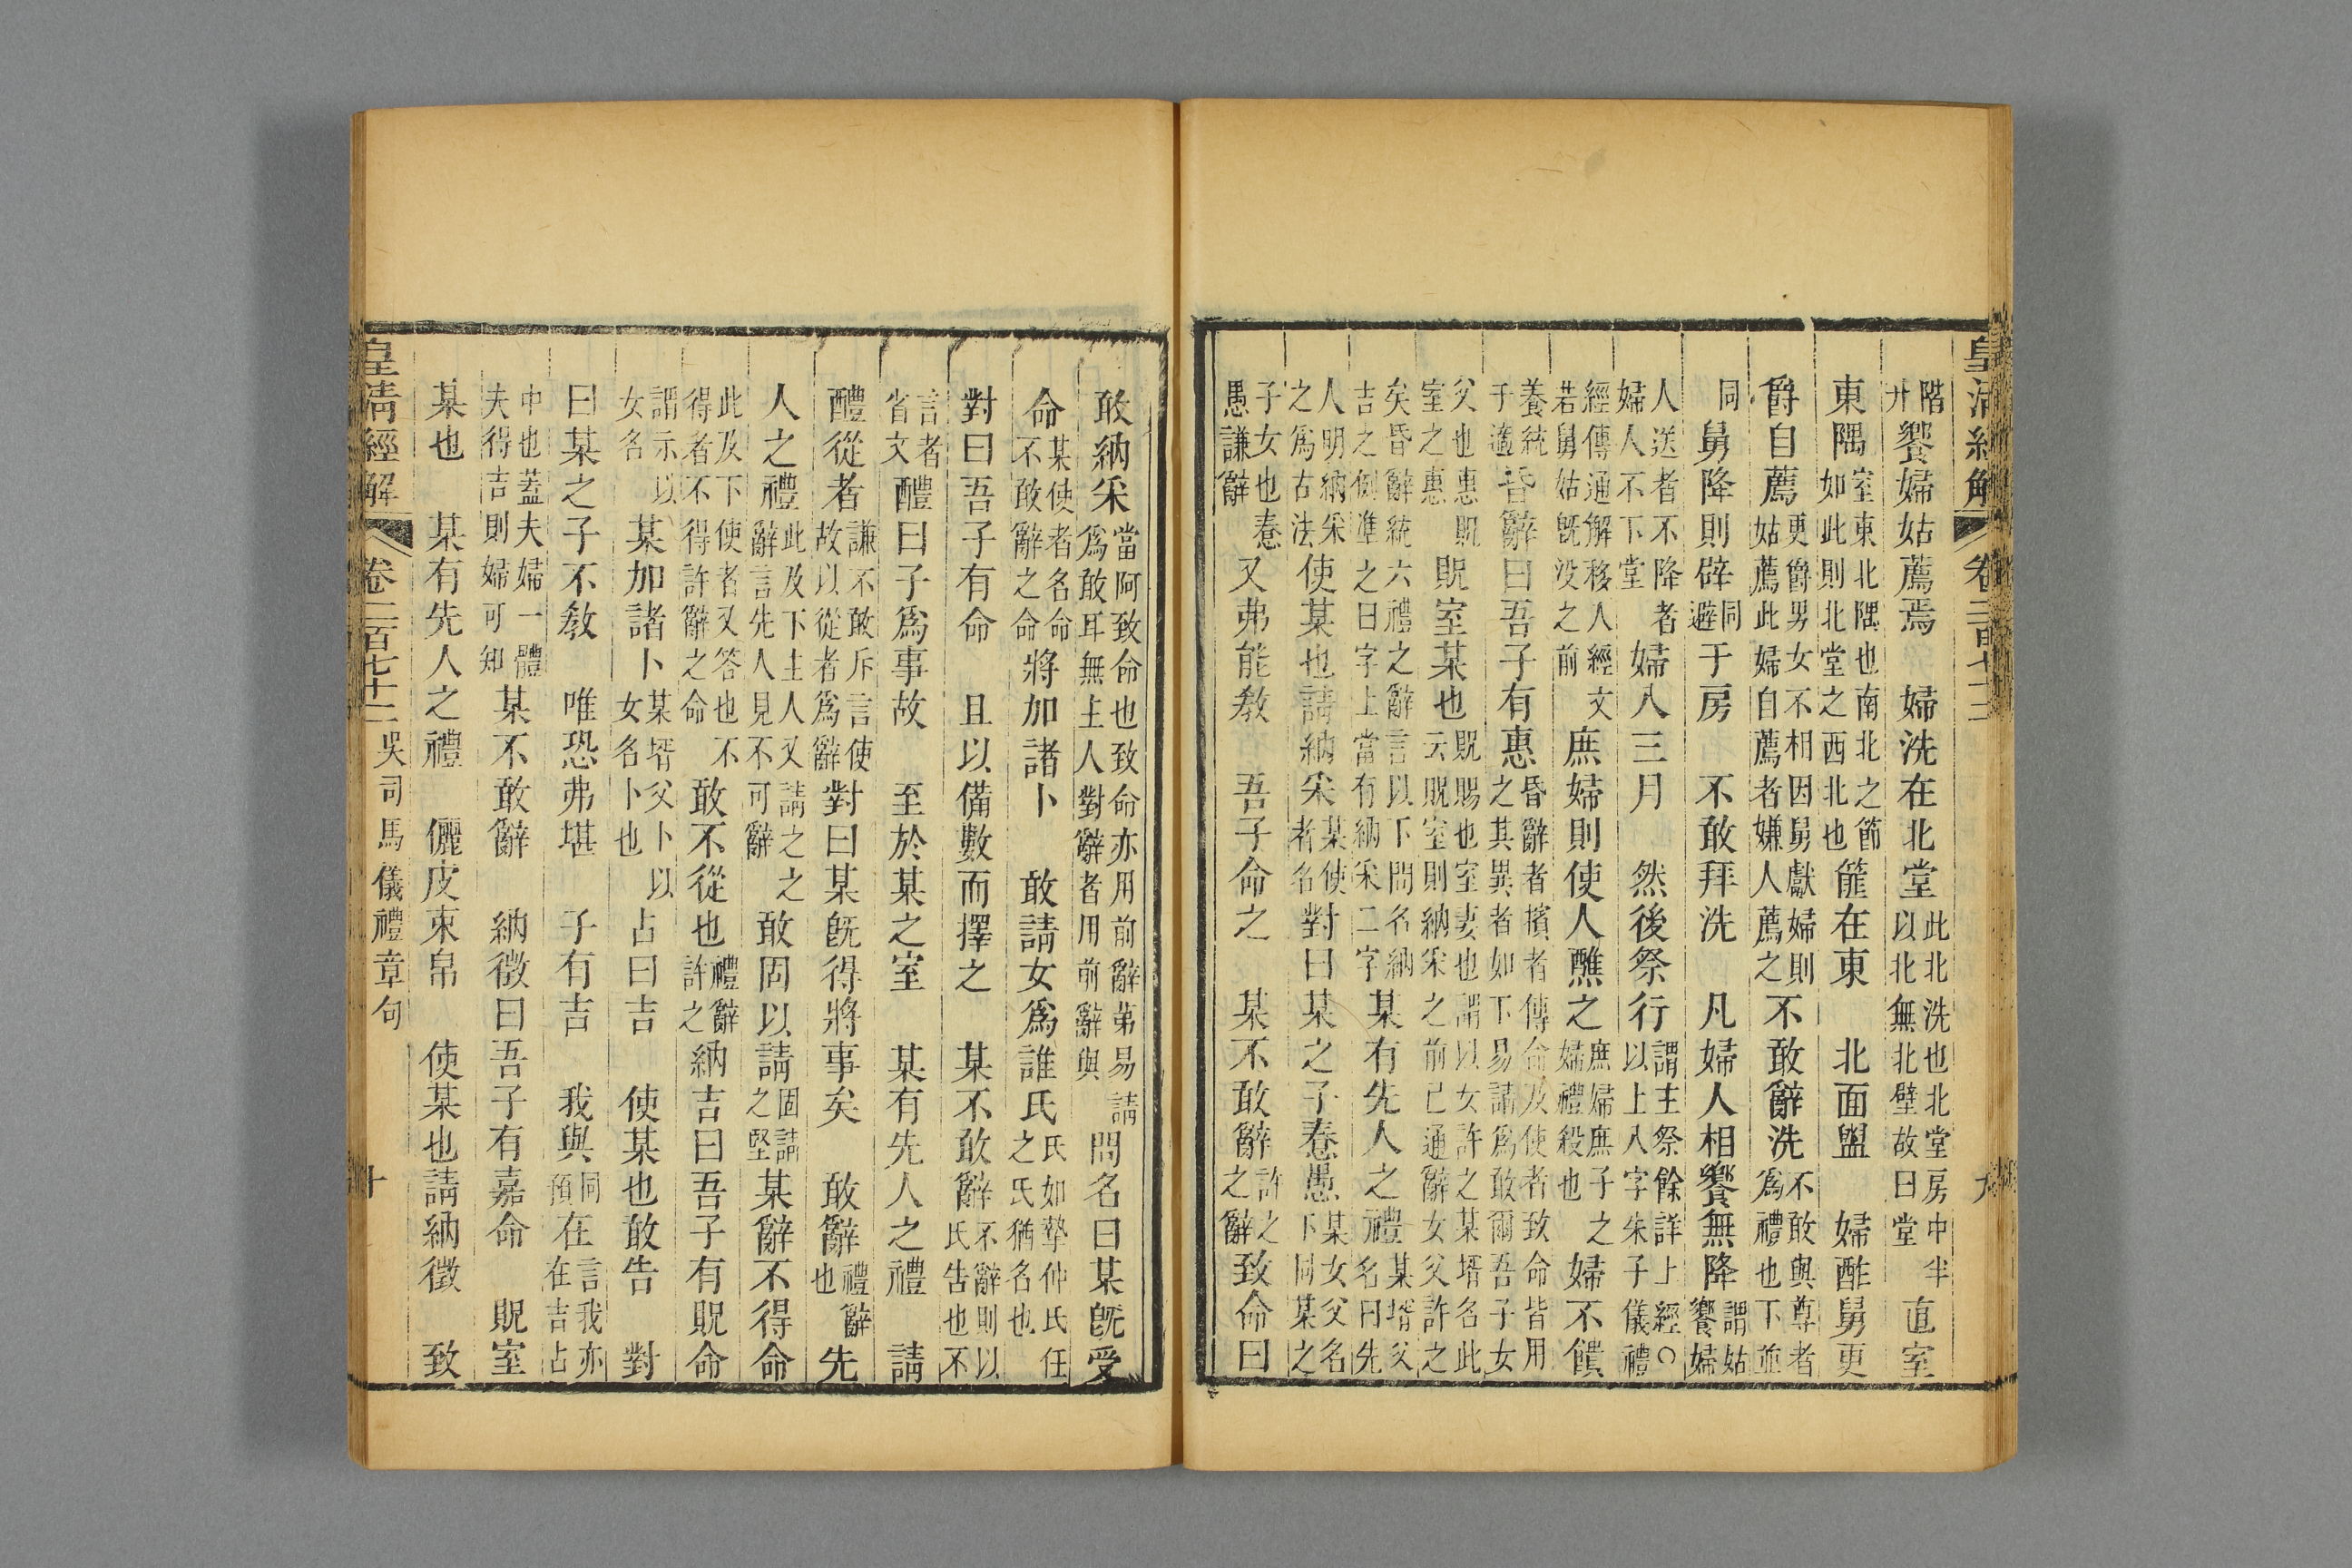 皇清經解 卷二百七十二 九
階升饗婦姑薦焉 婦洗在北堂此北洗也北堂房中半以北無北壁故曰堂 直室
東隅室東北隅也南北之節如此則北堂之西北也篚在東 北面盥 婦酢舅更
爵自薦更爵男女不相因舅獻婦則姑薦此婦自薦者嫌人薦之不敢辭洗不敢與尊者爲禮也下並
同 舅降則辟同避于房 不敢拜洗 凡婦人相饗無降謂姑饗婦
人送者不降者婦人不下堂婦入三月 然後祭行謂主祭餘詳上經○以上八字朱子儀禮
經傳通解移人經文若舅姑旣没之前庶婦則使人醮之庶婦庶子之婦禮殺也婦不饋
養統于適昏辭曰吾子有惠昏辭者擯者傳命及使者致命皆用之其異者如下易請爲敢爾吾子女
父也惠貺室之惠貺室某也貺賜也室妻也謂以女許之某壻名此云貺室則納采之前已通辭女父許之
矣昏辭統六禮之辭言以下問名納吉之例準之曰字上當有納采二字某有先人之禮某壻父名曰先
人明納采之爲古法使某也請納采某使者名對曰某之子惷愚某女父名下同某之
子女也惷愚謙辭 又弗能敎 吾子命之 某不敢辭許之之辭致命曰
敢納采當阿致命也致命亦用前辭第易請爲敢耳無主人對辭者用前辭與問名曰某旣受
命某使者名命不敢辭之命將加諸卜 敢請女爲誰氏氏如摯仲氏任之氏猶名也
對曰吾子有命 且以備數而擇之 某不敢辭不辭則以氏告也不
言者省文醴曰子爲事故 至於某之室 某有先人之禮 請
醴從者謙不敢斥言使故以從者爲辭對曰某旣得將事矣 敢辭禮辭也先
人之禮此及下主人又請之之辭言先人見不可辭敢固以請固請之堅某辭不得命
此及下使者又答也不得者不得許辭之命敢不從也禮辭許之納吉曰吾子有貺命
謂示以女名某加諸卜某壻父卜以女名卜也占曰吉 使某也敢告 對
曰某之子不敎 唯恐弗堪 子有吉 我與同預在言我亦在吉占
中也葢夫婦一體夫得吉則婦可知某不敢辭 納徵曰吾子有嘉命 貺室
某也 某有先人之禮 儷皮束帛 使某也請納徵 致
皇清經解 卷二百七十二 吳司馬儀禮章句 十